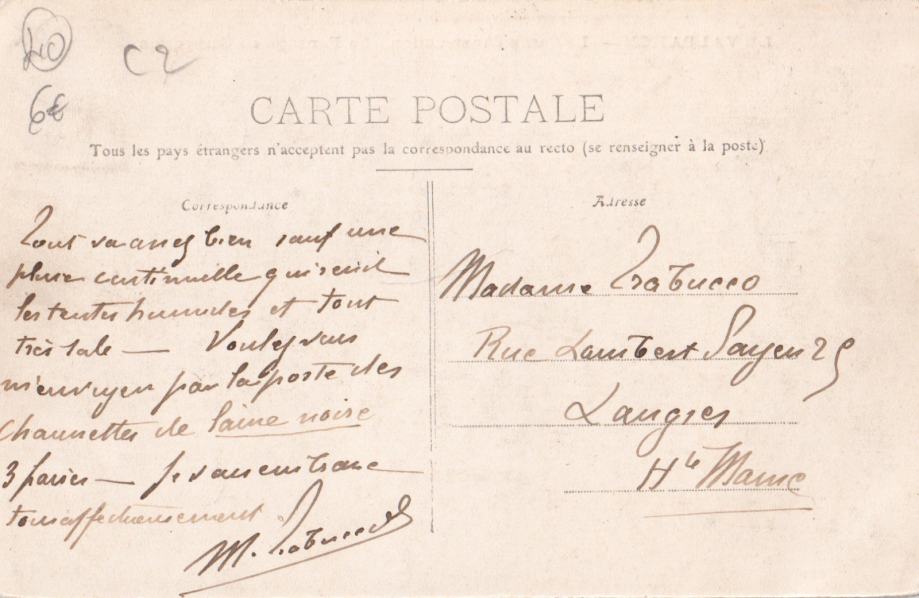 40
C2
6€
CARTE POSTALE
Tous les pays étrangers n'acceptent pas la correspondance au recto (se renseigner à la poste)
Correspondance
Tout va assez bien sauf une
pluie continuelle qui rend
les tentes humides et tout
très sale — Voulez vous
m'envoyer par la poste des
chaussettes de laine noire
3 paires — Je vous embrasse
tous affectueusement
M. Trabucco
Adresse
Madame Trabucco
Rue Lambert Payen 25
Langres
Hte Marne